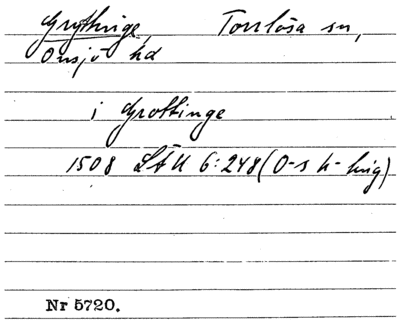 Grythinge, Torrlösa sn,
Onsjö hd
i Grottinge
1508 LÄU 6:248 (O-s h-hrig)
Nr 5720.